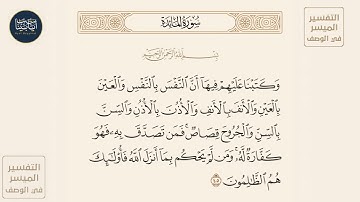 سُورَةُ المَائِدَةِ
بِسْمِ اللَّهِ الرَّحْمَٰنِ الرَّحِيمِ
وَكَتَبْنَا عَلَيْهِمْ فِيهَا أَنَّ النَّفْسَ بِالنَّفْسِ وَالْعَيْنَ
بِالْعَيْنِ وَالْأَنفَ بِالْأَنفِ وَالْأُذُنَ بِالْأُذُنِ وَالسِّنَّ
بِالسِّنِّ وَالْجُرُوحَ قِصَاصٌ ۚ فَمَن تَصَدَّقَ بِهِ فَهُوَ
كَفَّارَةٌ لَّهُ ۚ وَمَن لَّمْ يَحْكُم بِمَا أَنزَلَ اللَّهُ فَأُولَٰئِكَ
هُمُ الظَّالِمُونَ ٤٥
التفسير
الميسر
في الوصف
التفسير
الميسر
في الوصف